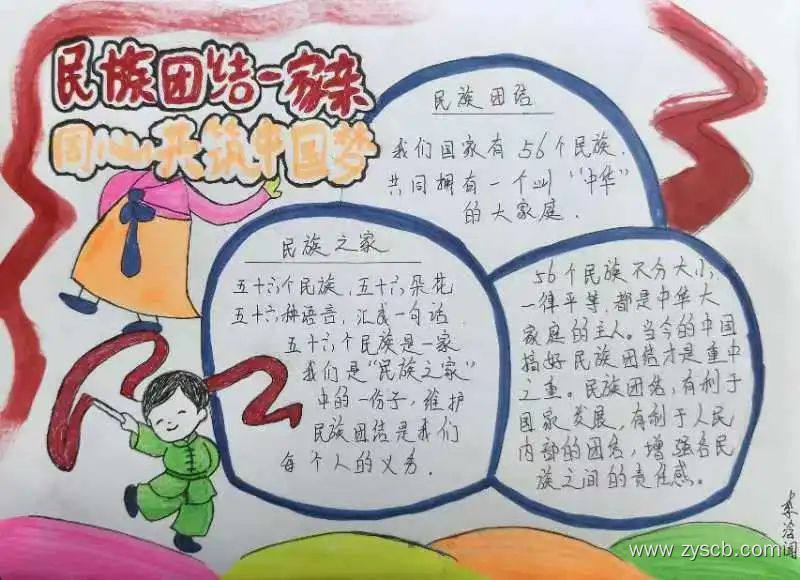 民族团结一家亲
同心共筑中国梦
民族团结
我们国家有56个民族.
共同拥有一个叫"中华"
的大家庭.
民族之家
五十六个民族,五十六朵花
五十六种语言,汇成一句话.
五十六个民族是一家
我们是"民族之家"
中的一份子,维护
民族团结是我们
每个人的义务.
56个民族不分大小,
一律平等,都是中华大
家庭的主人。当今的中国
搞好民族团结才是重中
之重。民族团结,有利于
国家发展,有利于人民
内部的团结,增强各民
族之间的责任感。
www.zyscb.com